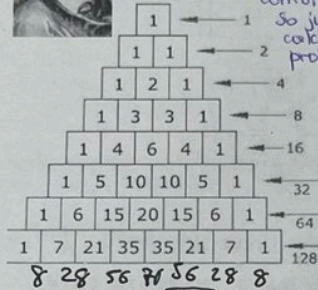 1 1
1 1 2
1 2 1 4
1 3 3 1 8
1 4 6 4 1 16
1 5 10 10 5 1 32
1 6 15 20 15 6 1 64
1 7 21 35 35 21 7 1 128
8 28 56 70 56 28 8
so